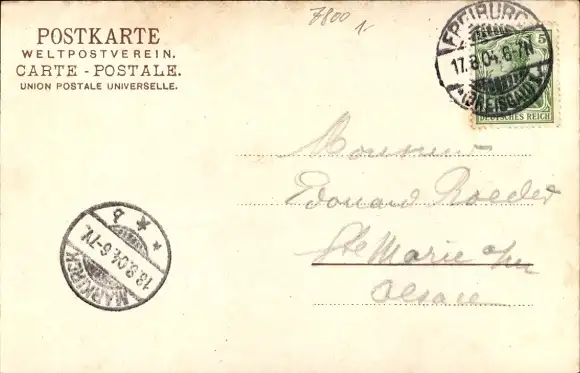 7800
1.-
POSTKARTE
WELTPOSTVEREIN.
CARTE - POSTALE.
UNION POSTALE UNIVERSELLE.
FREIBURG
17.8.04.6-7N
(BREISGAU)
5
DEUTSCHES REICH
Monsieur
Edouard Roeder
Ste Marie a/m
Alsace
MARKIRCH
18.8.04.6-7V.
* * b